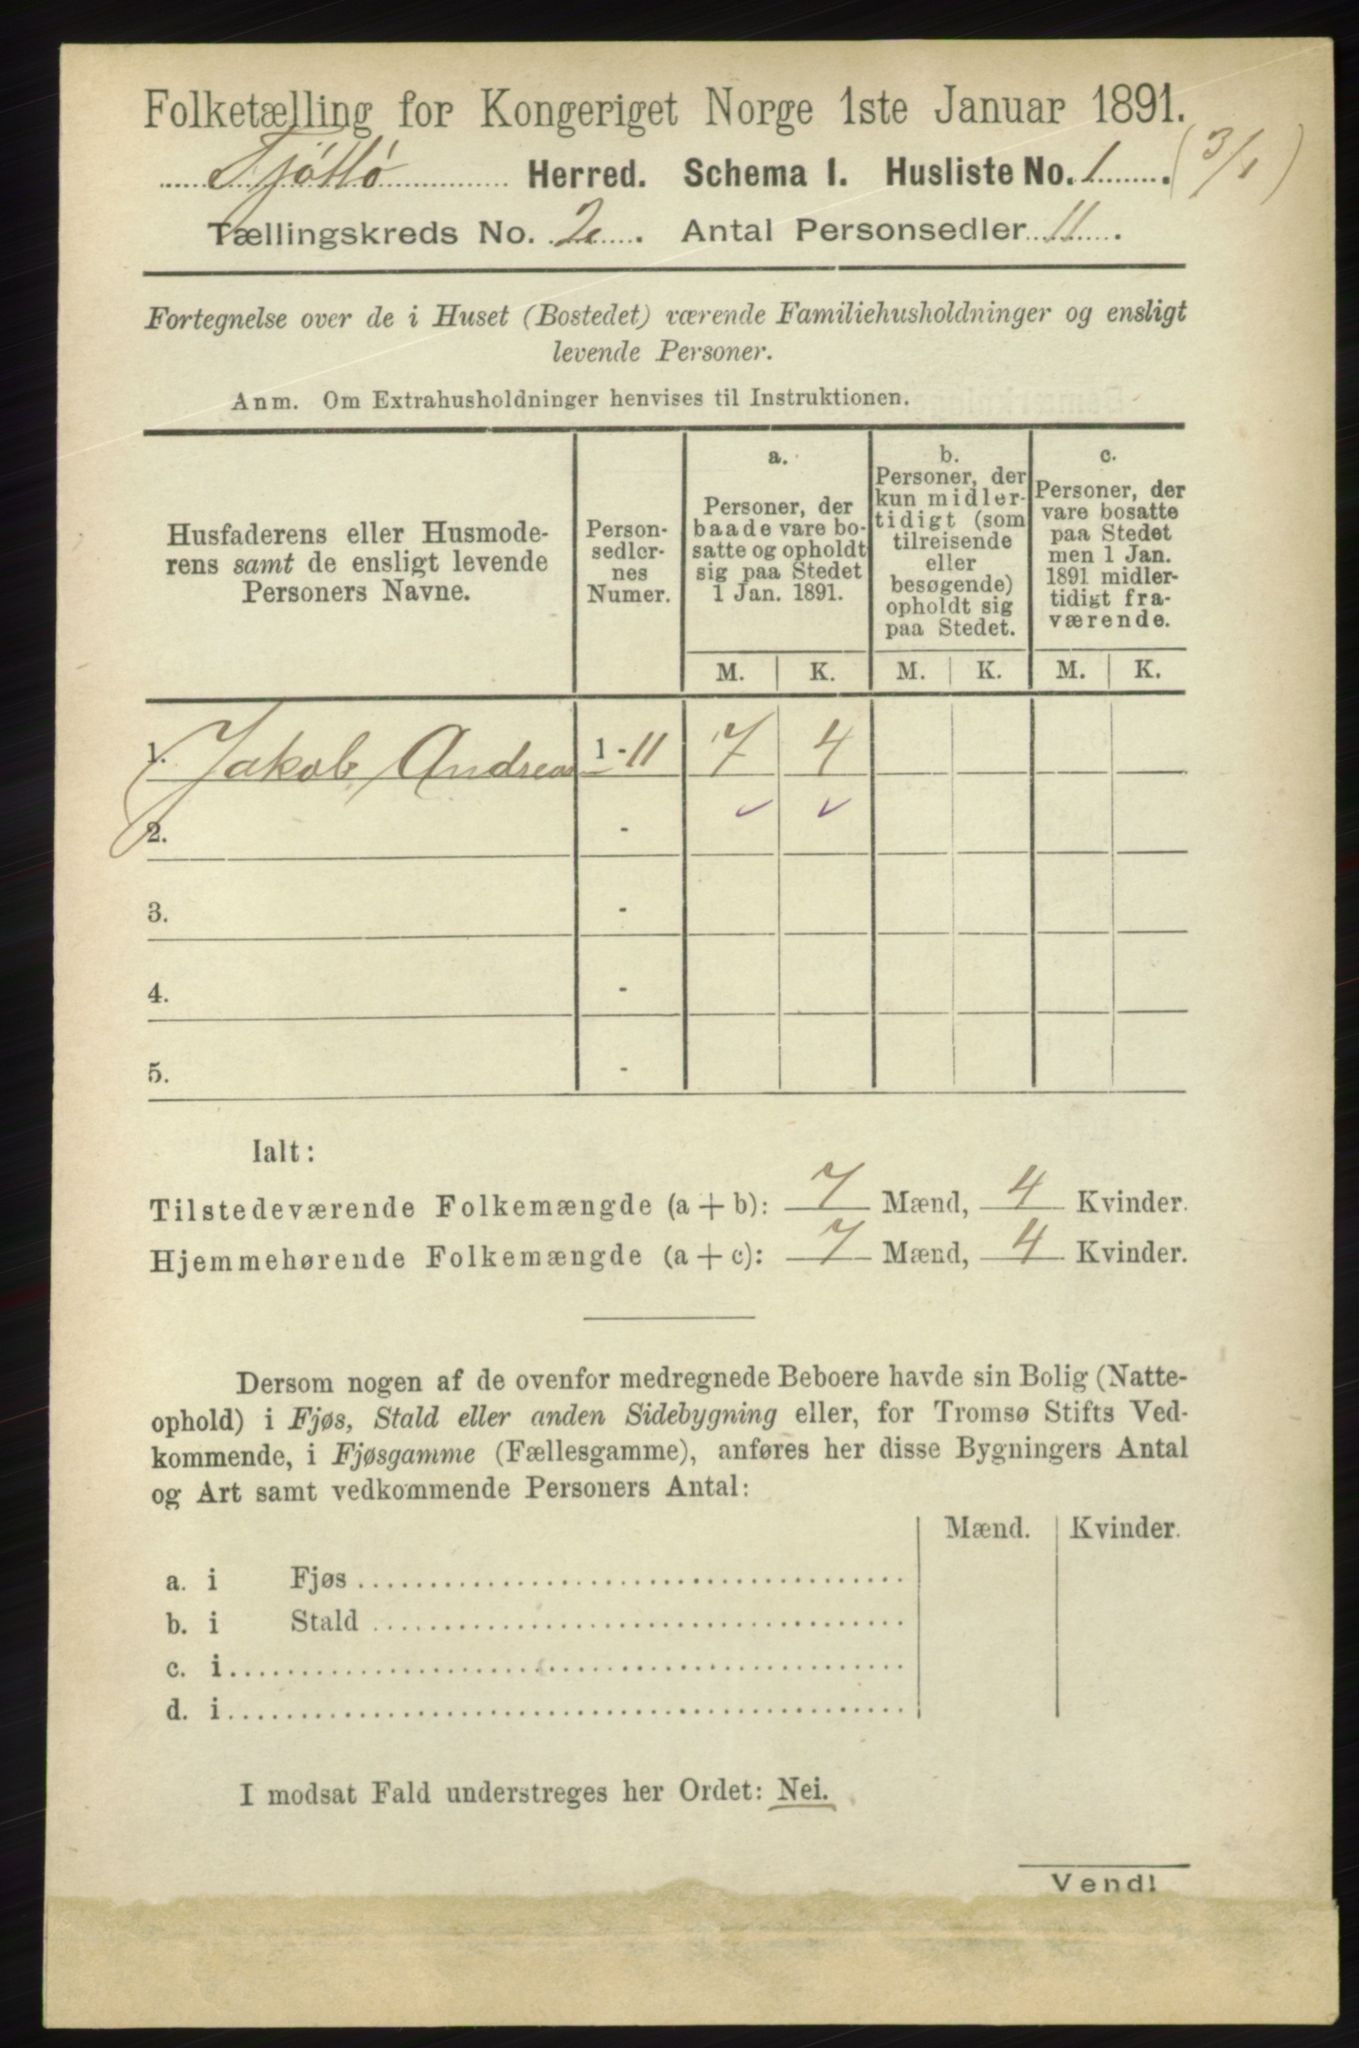 Folketælling for Kongeriget Norge 1ste Januar 1891.
Tjóttó Herred. Schema I. Husliste No. 1. (3/1)
Tællingskreds No. 2. Antal Personsedler 11.
Fortegnelse over de i Huset (Bostedet) værende Familiehusholdninger og ensligt
levende Personer.
Anm. Om Extrahusholdninger henvises til Instruktionen.
Husfaderens eller Husmode-
rens samt de ensligt levende
Personers Navne.
Person-
sedler-
nes
Numer.
a.
Personer, der
baade vare bo-
satte og opholdt
sig paa Stedet
1 Jan. 1891.
b.
Personer, der
kun midler-
tidigt (som
tilreisende
eller
besøgende)
opholdt sig
paa Stedet.
c.
Personer, der
vare bosatte
paa Stedet
men 1 Jan.
1891 midler-
tidigt fra-
værende.
M. K. M. K. M. K.
1. Jakob Andreas 1-11 7 4
2. -
3. -
4. -
5. -
Ialt:
Tilstedeværende Folkemængde (a+b): 7 Mænd, 4 Kvinder.
Hjemmehørende Folkemængde (a+c): 7 Mænd, 4 Kvinder.
Dersom nogen af de ovenfor medregnede Beboere havde sin Bolig (Natte-
ophold) i Fjøs, Stald eller anden Sidebygning eller, for Tromsø Stifts Ved-
kommende, i Fjøsgamme (Fællesgamme), anføres her disse Bygningers Antal
og Art samt vedkommende Personers Antal:
Mænd. Kvinder.
a. i Fjøs
b. i Stald
c. i
d. i
I modsat Fald understreges her Ordet: Nei.
Vend!